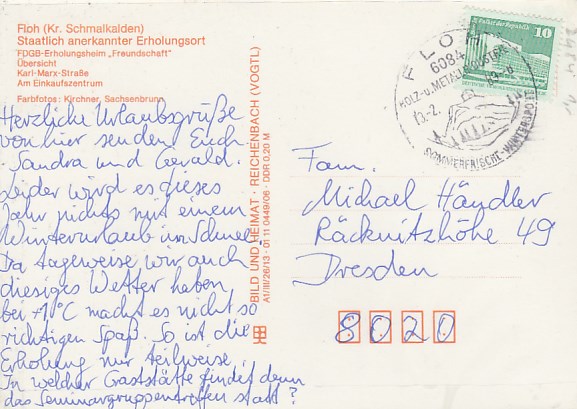 Floh (Kr. Schmalkalden)
Staatlich anerkannter Erholungsort
FDGB-Erholungsheim „Freundschaft“
Übersicht
Karl-Marx-Straße
Am Einkaufszentrum
Farbfotos: Kirchner, Sachsenbrunn
Herzliche Urlaubsgrüße
von hier senden Euch
Sandra und Gerald.
Leider wird es dieses
Jahr nichts mit einem
Winterurlaub im Schnee.
Da tageweise wir auch
diesiges Wetter haben
bei +1°C macht es nicht so
richtigen Spaß. So ist die
Erholung nur teilweise.
In welcher Gaststätte findet denn
das Seminargruppentreffen statt?
BILD UND HEIMAT · REICHENBACH (VOGTL)
A1/III/26/13 · 01 11 0449/06 · DDR 0,20 M
FLOH
6084
HOLZ- u. METALLINDUSTRIE
13.-2.
SOMMERFRISCHE-WINTERSPORT
10
Palast der Republik
Fam.
Michael Händler
Räcknitzhöhe 49
Dresden
8020